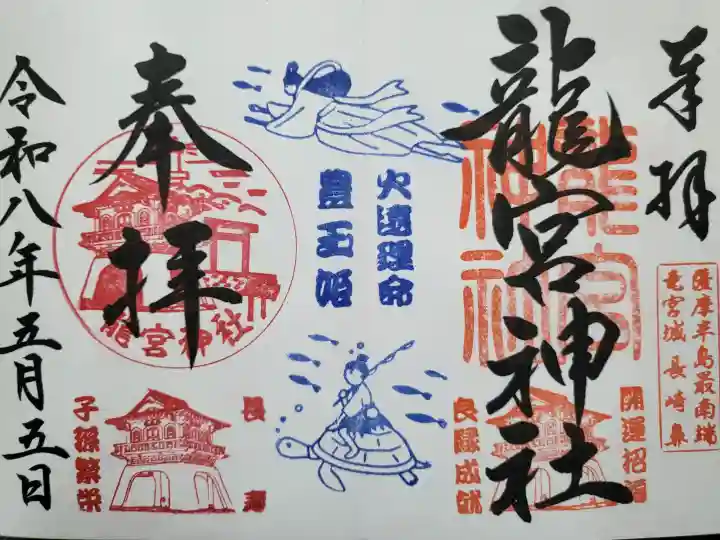 奉拝
龍宮神社
龍宮
神社
薩摩半島最南端
竜宮城長崎鼻
開運招福
良縁成就
火遠理命
豊玉姫
奉拝
龍宮神社
長寿
子孫繁栄
令和八年五月五日